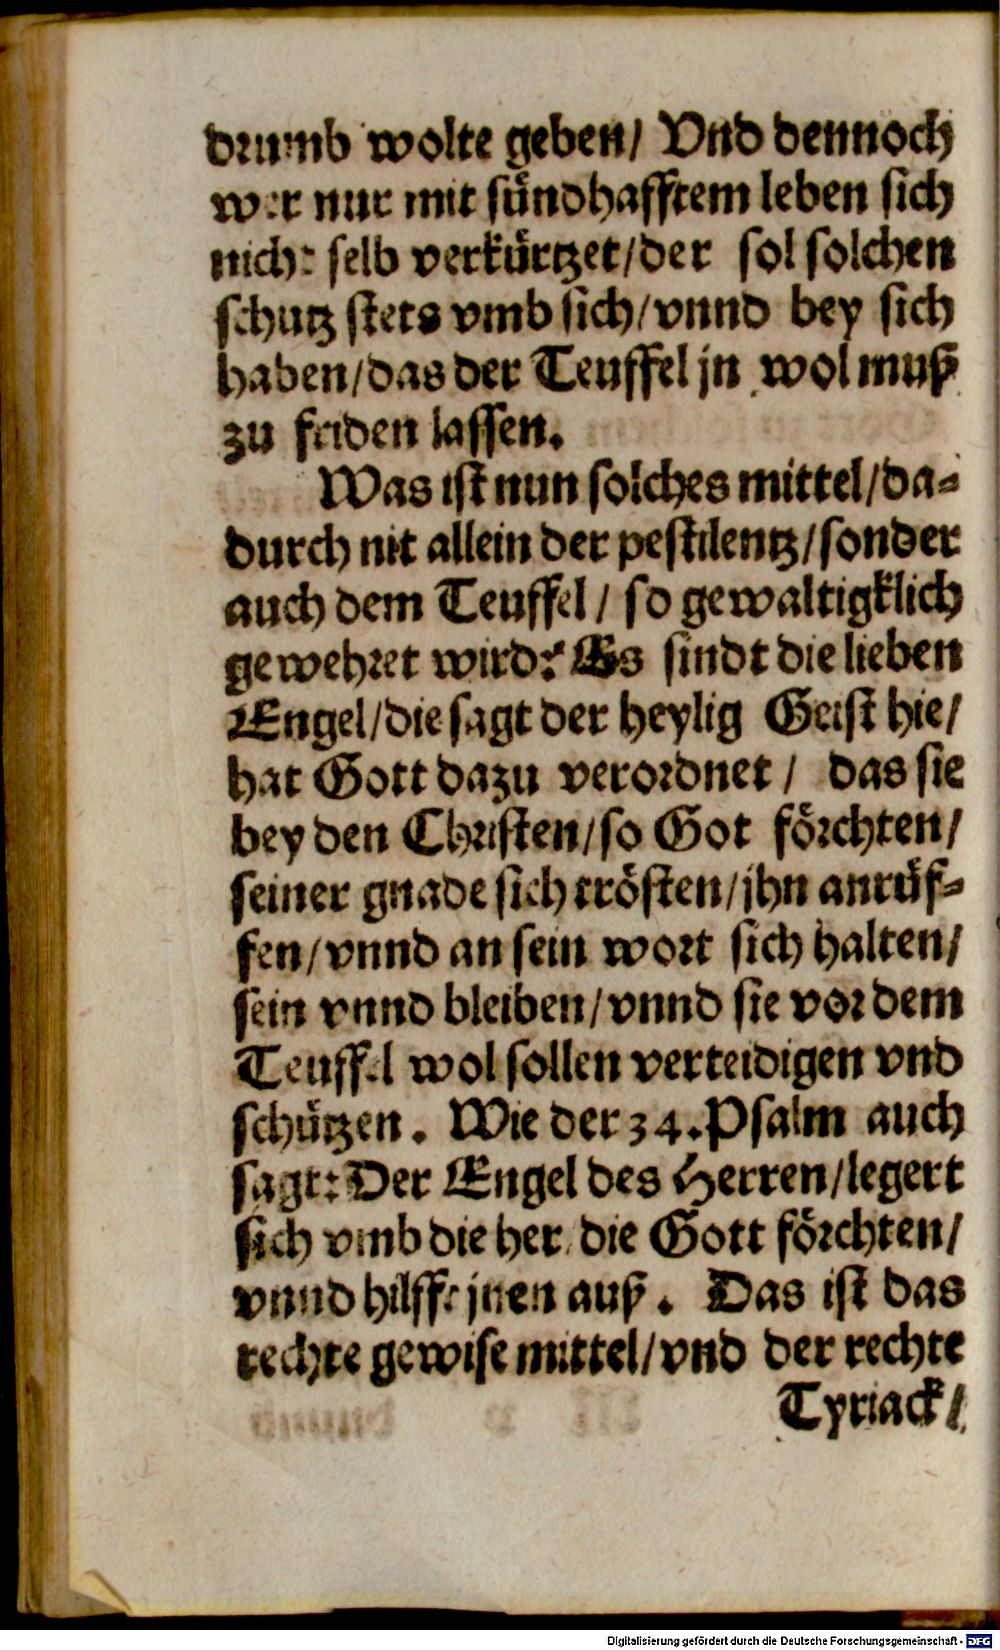 drumb wolte geben/ Vnd dennoch
wer nur mit sündhafftem leben sich
nicht selb verkürtzet/der sol solchen
schutz stets vmb sich/vnnd bey sich
haben/das der Teuffel jn wol muß
zu friden lassen.
Was ist nun solches mittel/da-
durch nit allein der pestilentz/sonder
auch dem Teuffel/ so gewaltigklich
gewehret wird? Es sindt die lieben
Engel/die sagt der heylig Geist hie/
hat Gott dazu verordnet/ das sie
bey den Christen/so Got förchten/
seiner gnade sich trösten/jhn anrüf-
fen/vnnd an sein wort sich halten/
sein vnnd bleiben/vnnd sie vor dem
Teuffel wol sollen verteidigen vnd
schützen. Wie der 34. Psalm auch
sagt: Der Engel des Herren/legert
sich vmb die her/die Gott förchten/
vnnd hilfft jnen auß. Das ist das
rechte gewise mittel/vnd der rechte
Tyriack/
Digitalisierung gefördert durch die Deutsche Forschungsgemeinschaft - DFG